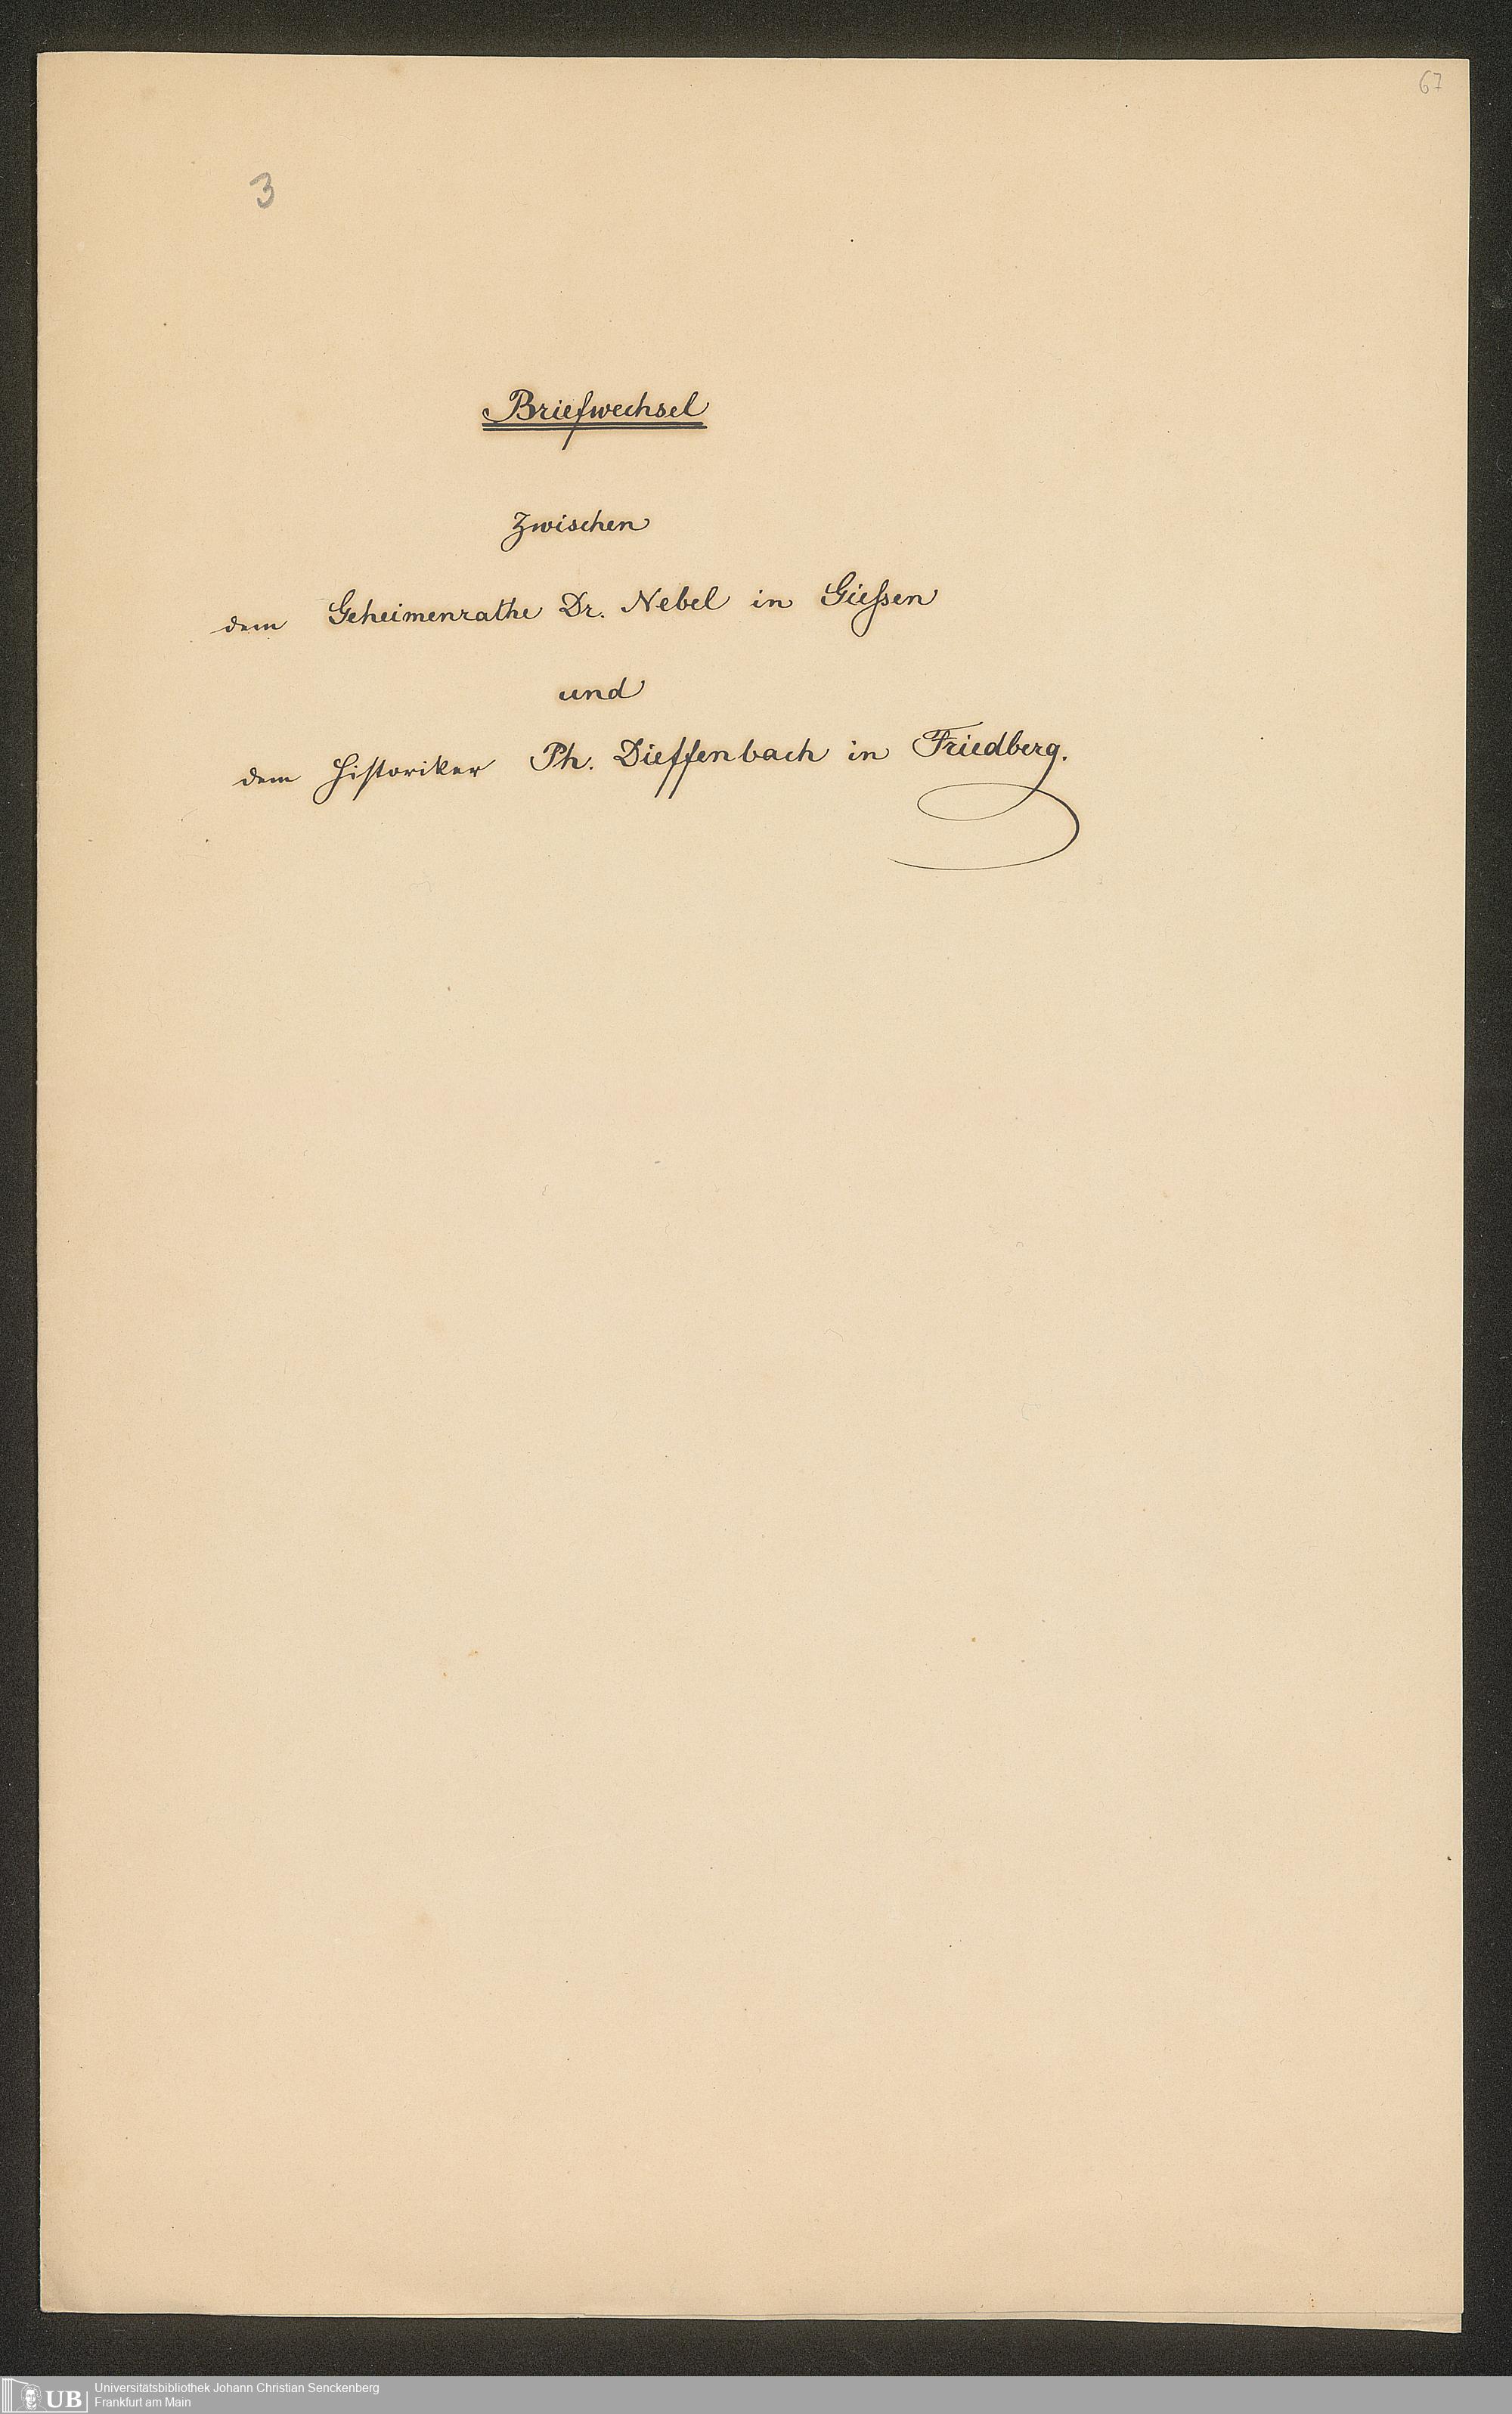 67
3
Briefwechsel
zwischen
dem Geheimenrathe Dr. Nebel in Gießen
und
dem Historiker Ph. Dieffenbach in Friedberg.
UB
Universitätsbibliothek Johann Christian Senckenberg
Frankfurt am Main